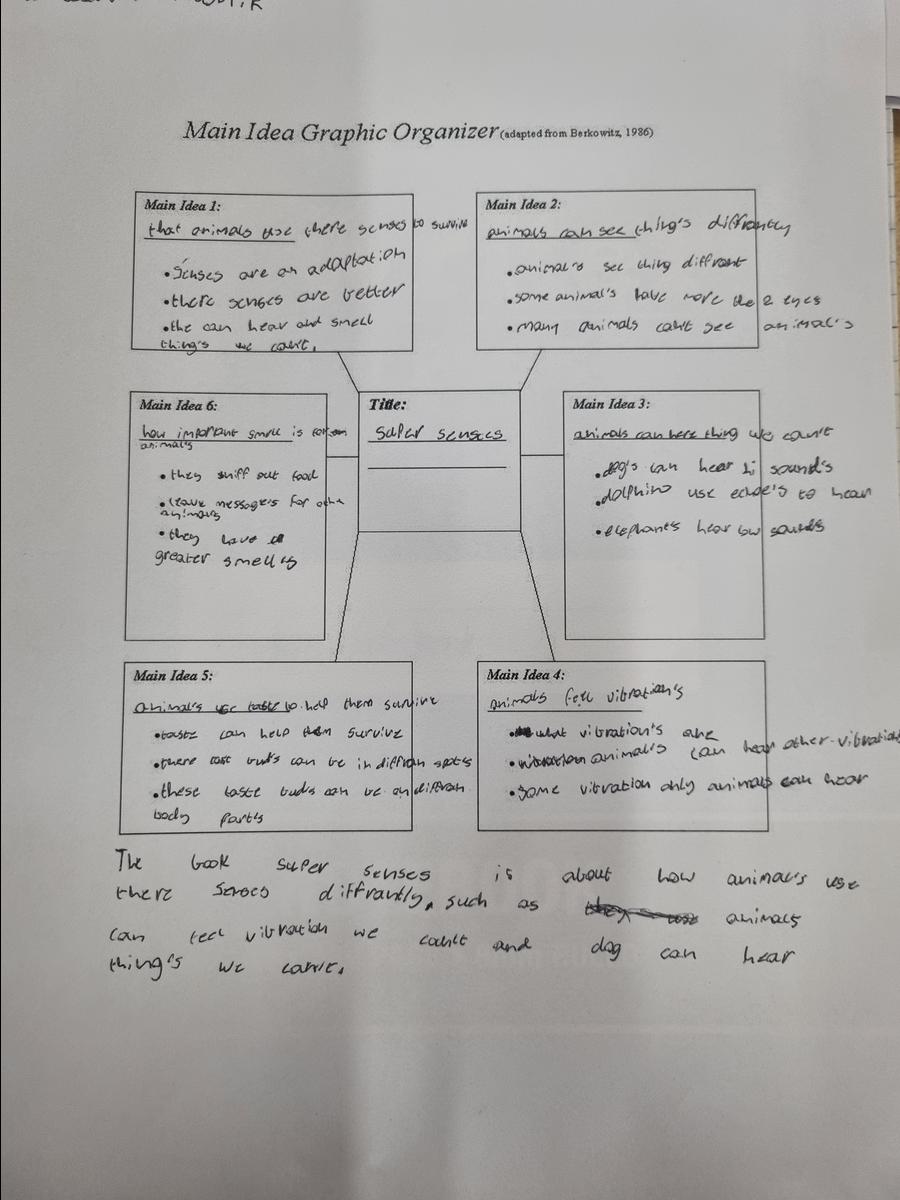 Main Idea Graphic Organizer (adapted from Berkowitz, 1986)
Main Idea 1:
that animals use there senses to survive
• Senses are an adaptation
• there senses are better
• the can hear and smell
thing's we can't.
Main Idea 2:
animals can see thing's diffrantly
• animal's see thing diffrent
• some animal's have more the 2 eyes
• many animals can't see animal's
Main Idea 6:
how important smell is for
animal's
• they sniff out food
• leave message's for othe
animals
• they have a
greater smell's
Title:
super senses
Main Idea 3:
animals can here thing we can't
• dog's can hear hi sound's
• dolphins use echo's to hear
• elephants hear low sounds
Main Idea 5:
animal's use taste to help them survive
• taste can help them survive
• there tast bud's can be in diffran spots
• these taste buds can be on diffran
body parts
Main Idea 4:
animals feel vibration's
• what vibration's are
• animal's can hear other vibrations
• some vibration only animals can hear
The book super senses is about how animal's use
there senses diffrantly, such as animals
can feel vibration we can't and dog can hear
thing's we can't.